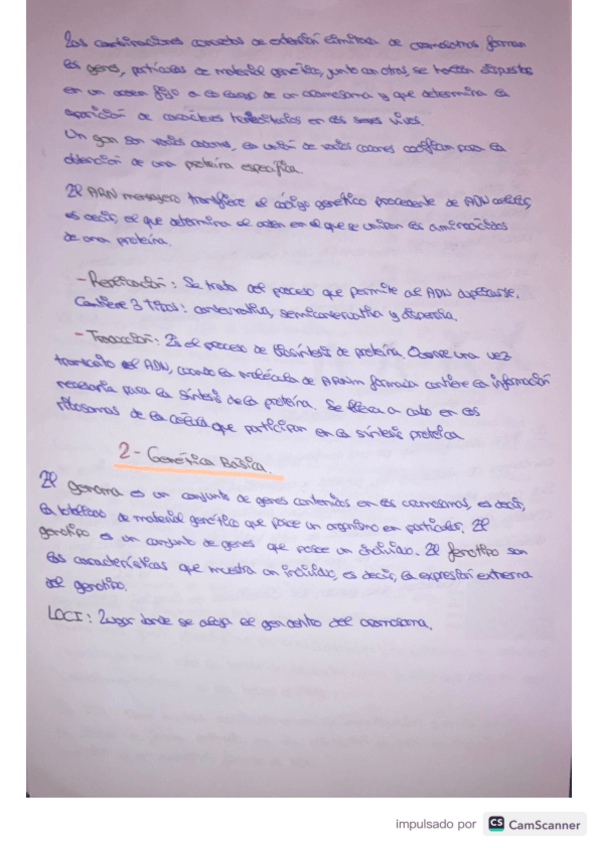 Las combinaciones concretas de extensión limitada de cromosomas forman
los genes, partículas de material genético, junto con otros, se hallan dispuestos
en un orden fijo a lo largo de un cromosoma y que determina la
aparición de caracteres hereditarios en los seres vivos.
Un gen son varios codones, la unión de varios codones codifican para la
obtención de una proteína específica.
El ARN mensajero transfiere el código genético procedente de ADN celular,
es decir, el que determina el orden en el que se unirán los aminoácidos
de una proteína.
- Replicación: Se trata del proceso que permite al ADN duplicarse.
Contiene 3 tipos: conservativa, semiconservativa y dispersa.
- Traducción: Es el proceso de biosíntesis de proteína. Ocurre una vez
transcrito el ADN, cuando la molécula de ARNm formada contiene la información
necesaria para la síntesis de la proteína. Se lleva a cabo en los
ribosomas de la célula que participan en la síntesis proteica
2 - Genética Básica.
El genoma es un conjunto de genes contenidos en los cromosomas, es decir,
la totalidad de material genético que posee un organismo en particular. El
genotipo es un conjunto de genes que posee un individuo. El fenotipo son
las características que muestra un individuo, es decir, la expresión externa
del genotipo.
LOCI: Lugar donde se aloja el gen dentro del cromosoma.
impulsado por CS CamScanner